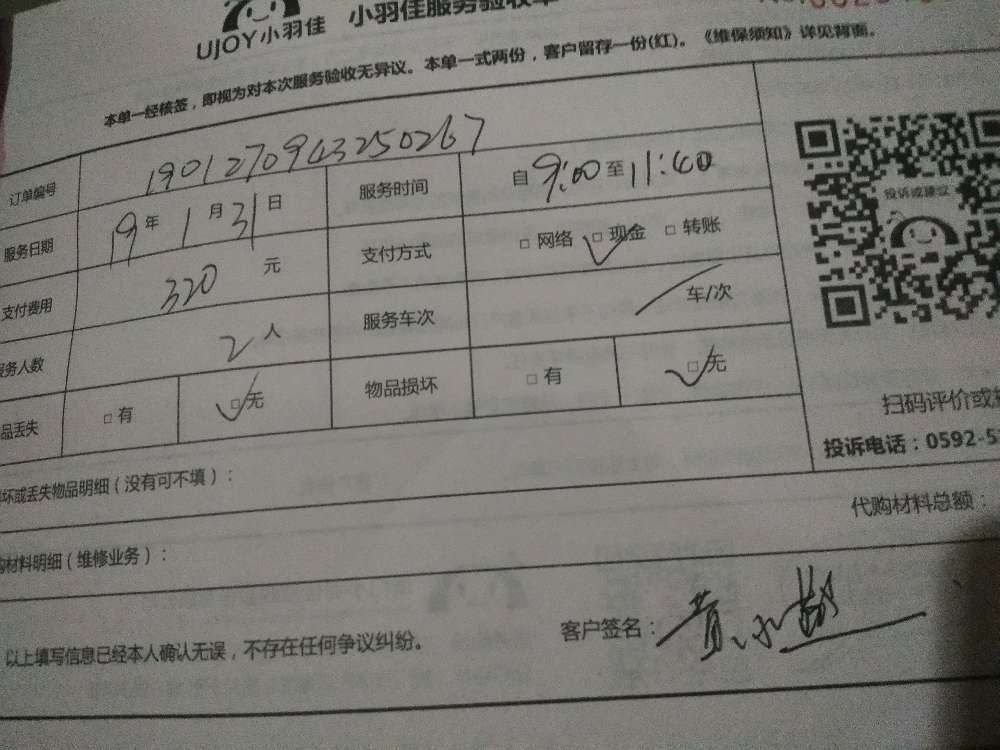 UJOY小羽佳 小羽佳服务验收单
本单一经核签，即视为对本次服务验收无异议。本单一式两份，客户留存一份(红)。《维保须知》详见背面。
订单编号 1901270943250267
服务日期 19年1月31日 服务时间 自9:00至11:40
支付费用 320元 支付方式 □网络 □✓现金 □转账
务人数 2人 服务车次 / 车/次
品丢失 □有 □✓无 物品损坏 □有 □✓无
投诉或建议
扫码评价或
投诉电话：0592-5
坏或丢失物品明细（没有可不填）：
代购材料总额：
购材料明细（维修业务）：
以上填写信息已经本人确认无误，不存在任何争议纠纷。 客户签名：黄小